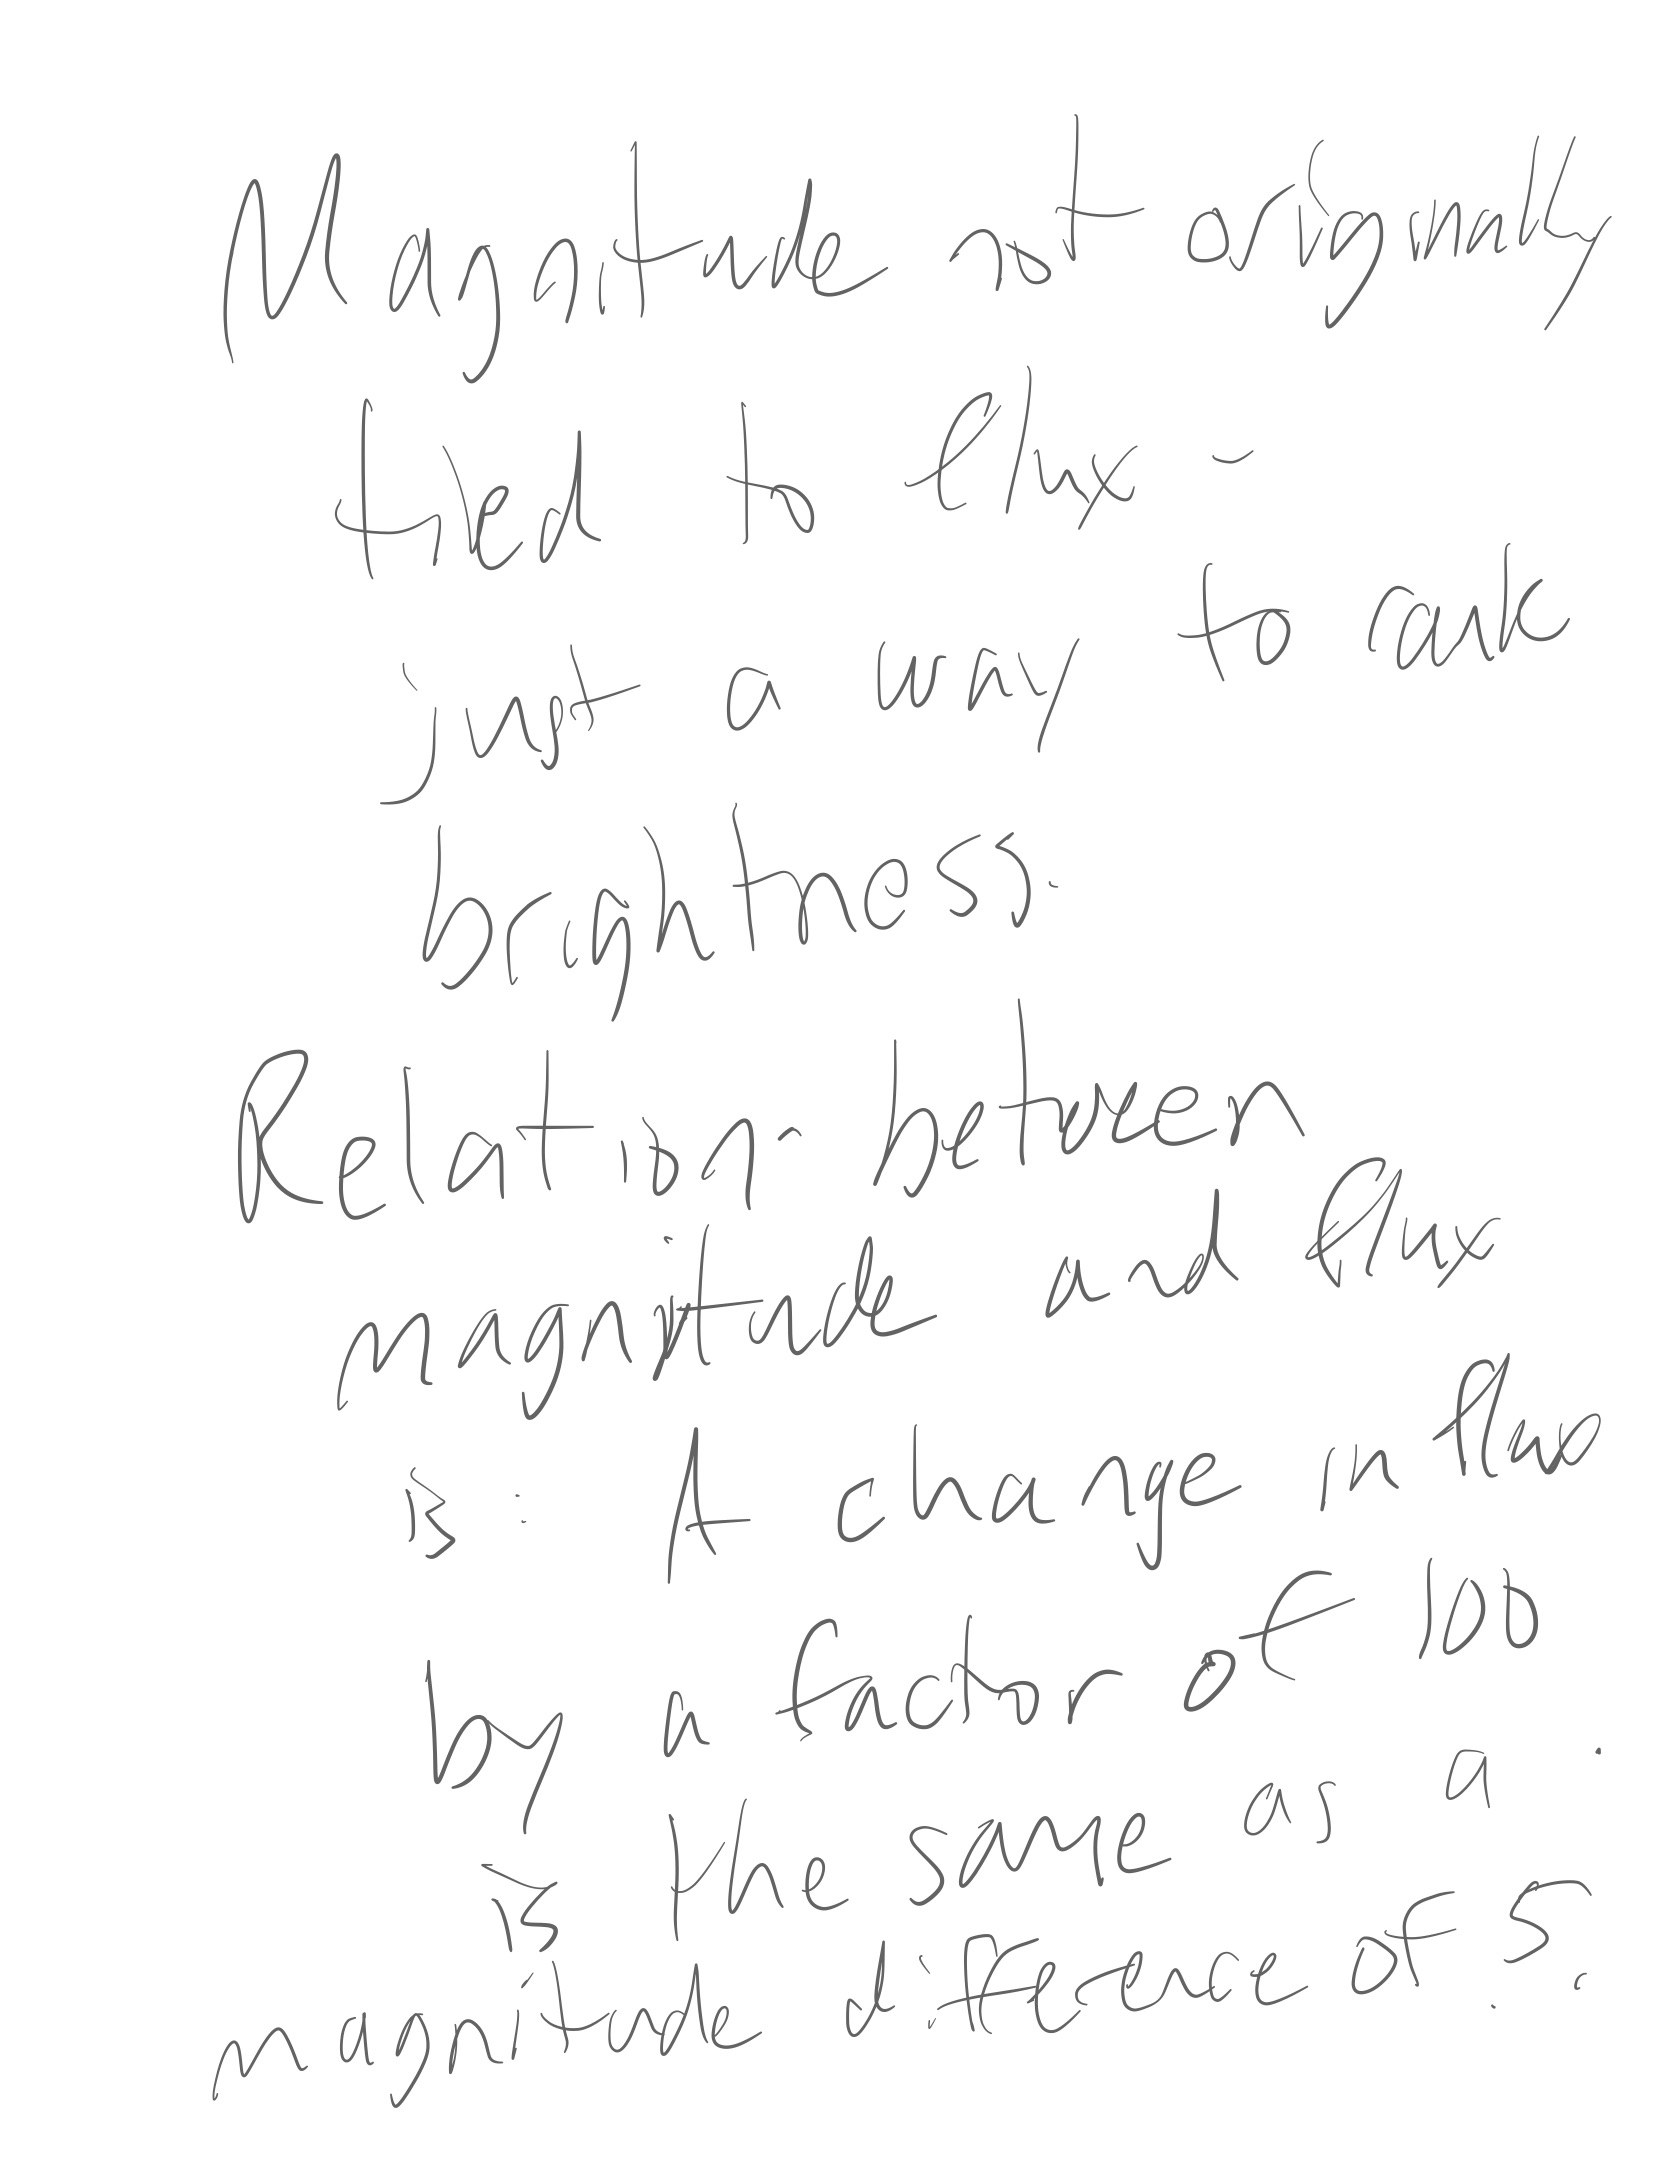 Magnitude not originally
tied to flux -
just a way to rank
brightness.
Relation between
magnitude and flux
is: A change in flux
by a factor of 100
is the same as a
magnitude difference of 5.